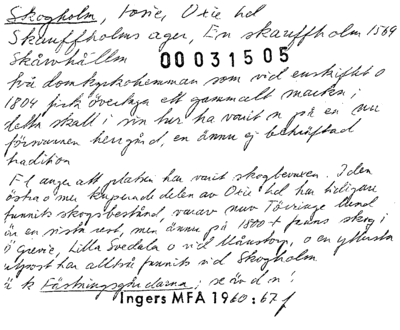 Skogholm, Tosie, Oxie hd
Skauffholms ager, En skauffholm 1569
Skåwhållm 00031505
två domkyrkohemman som vid enskiftet o
1804 fick överlaga ett gammalt marken i
detta skall i sin tur ha varit n på en nu
försvunnen herrgård, en ännu ej bekräftad
tradition
F l anger att platsen har varit skogbevuxen. I den
östra o mer kuperade delen av Oxie hd har tidigare
funnits skogsbestånd, varav nuv Törringe lund
är en sista rest, men ännu på 1800-t fanns skog i
Ö Grevie, Lilla Svedala o vid Månstorp, o en yttersta
utpost har alltså funnits vid Skogholm
ä k Fästningsgårdarna; se år d n!
Ingers MFA 1960: 67 f